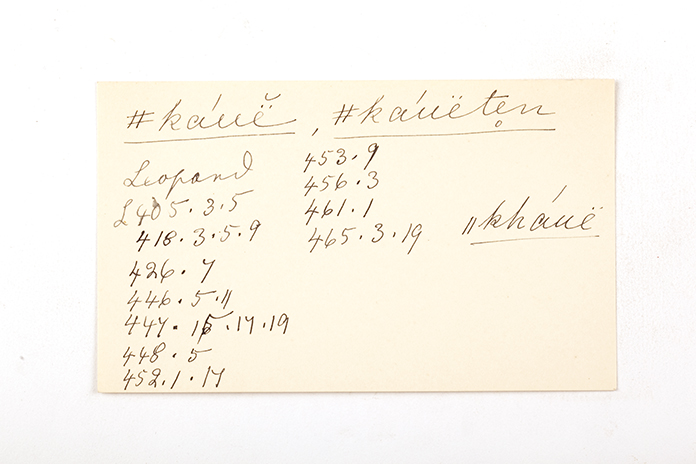 #káuĕ, #káuëtẹn
Leopard
L 405.3.5
418.3.5.9
426.7
446.5.11
447.15.17.19
448.5
452.1.17
453.9
456.3
461.1
465.3.19
"kháuë